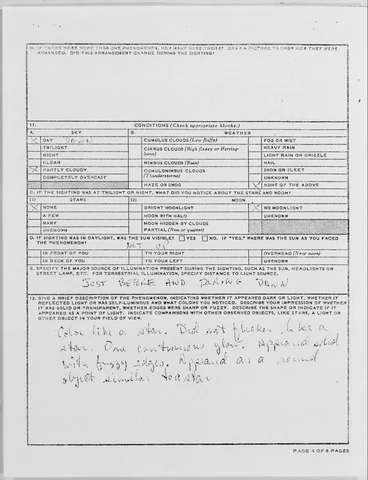 10. IF THERE WERE MORE THAN ONE PHENOMENON, HOW MANY WERE THERE? DRAW A PICTURE TO SHOW HOW THEY WERE
ARRANGED. DID THIS ARRANGEMENT CHANGE DURING THE SIGHTING?
11. CONDITIONS (Check appropriate blocks.)
A. SKY B. WEATHER
X DAY DAWN CUMULUS CLOUDS (Low fluffy) FOG OR MIST
TWILIGHT CIRRUS CLOUDS (High fleecy or Herring-bone) HEAVY RAIN
NIGHT LIGHT RAIN OR DRIZZLE
CLEAR NIMBUS CLOUDS (Rain) HAIL
X PARTLY CLOUDY CUMULONIMBUS CLOUDS (Thunderstorms) SNOW OR SLEET
COMPLETELY OVERCAST UNKNOWN
HAZE OR SMOG X NONE OF THE ABOVE
C. IF THE SIGHTING WAS AT TWILIGHT OR NIGHT, WHAT DID YOU NOTICE ABOUT THE STARS AND MOON?
(1) STARS (2) MOON
X NONE BRIGHT MOONLIGHT X NO MOONLIGHT
A FEW MOON WITH HALO UNKNOWN
MANY MOON HIDDEN BY CLOUDS
UNKNOWN PARTIAL (New or quarter)
D. IF SIGHTING WAS IN DAYLIGHT, WAS THE SUN VISIBLE? YES NO. IF "YES," WHERE WAS THE SUN AS YOU FACED
THE PHENOMENON? NOT UP
IN FRONT OF YOU TO YOUR RIGHT OVERHEAD (Near noon)
IN BACK OF YOU TO YOUR LEFT UNKNOWN
E. SPECIFY THE MAJOR SOURCE OF ILLUMINATION PRESENT DURING THE SIGHTING, SUCH AS THE SUN, HEADLIGHTS OR
STREET LAMP, ETC. FOR TERRESTRIAL ILLUMINATION, SPECIFY DISTANCE TO LIGHT SOURCE.
JUST BEFORE AND DURING DAWN
12. GIVE A BRIEF DESCRIPTION OF THE PHENOMENON, INDICATING WHETHER IT APPEARED DARK OR LIGHT, WHETHER IT
REFLECTED LIGHT OR WAS SELF-LUMINOUS AND WHAT COLORS YOU NOTICED. DESCRIBE YOUR IMPRESSION OF WHETHER
IT WAS SOLID OR TRANSPARENT, WHETHER EDGES WERE SHARP OR FUZZY. DESCRIBE THE SHAPE OR INDICATE IF IT
APPEARED AS A POINT OF LIGHT. INDICATE COMPARISONS WITH OTHER OBSERVED OBJECTS, LIKE STARS, A LIGHT OR
OTHER OBJECT IN YOUR FIELD OF VIEW.
Color like a star. Did not flicker like a
star. One continuous glow. Appeared solid
with fuzzy edges. Appeared as a round
object similar to a star.
PAGE 4 OF 9 PAGES